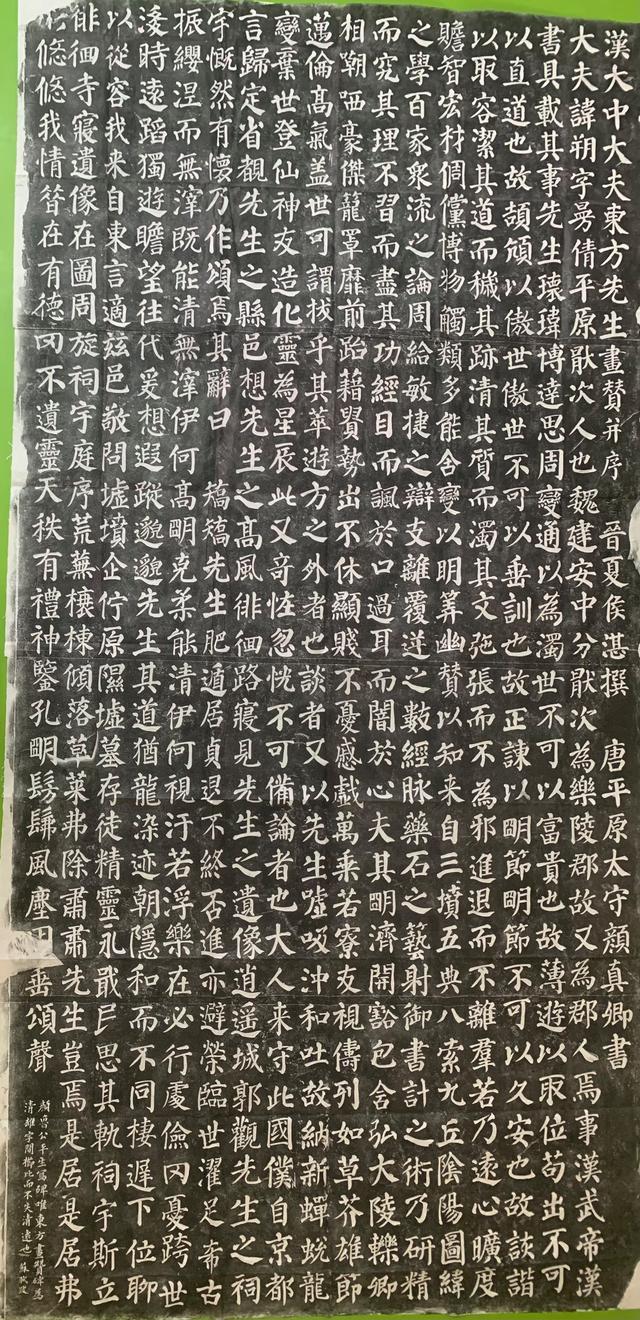 漢大中大夫東方先生畫贊并序 晉夏侯湛撰 唐平原太守顏真卿書
大夫諱朔字曼倩平原猒次人也魏建安中分猒次為樂陵郡故又為郡人焉事漢武帝漢
書具載其事先生瓌瑋博達思周變通以為濁世不可以富貴也故薄遊以取位苟出不可
以直道也故頡頏以傲世傲世不可以垂訓也故正諫以明節明節不可以久安也故詼諧
以取容潔其道而穢其跡清其質而濁其文弛張而不為邪進退而不離羣若乃遠心曠度
贍智宏材倜儻博物觸類多能合變以明筭幽贊以知来自三墳五典八索九丘陰陽圖緯
之學百家衆流之論周給敏捷之辯支離覆逆之數經脉藥石之藝射御書計之術乃研精
而究其理不習而盡其功經目而諷於口過耳而闇於心夫其明濟開豁包含弘大陵轢卿
相嘲哂豪傑籠罩靡前跆藉貴勢出不休顯賤不憂慼戲萬乘若寮友視儔列如草芥雄節
邁倫高氣盖世可謂拔乎其萃遊方之外者也談者又以先生噓吸沖和吐故納新蟬蛻龍
變棄世登仙神友造化靈為星辰此又奇怪忽恍不可備論者也大人来守此國僕自京都
言歸定省覩先生之縣邑想先生之高風徘徊路寢見先生之遺像逍遥城郭觀先生之祠
宇慨然有懷乃作頌焉其辭曰 矯矯先生肥遁居貞退不終否進亦避榮臨世濯足希古
振纓涅而無滓既能清無滓伊何高明克柔能清伊何視汙若浮樂在必行處儉罔憂跨世
淩時遠蹈獨遊瞻望往代爰想遐蹤邈邈先生其道猶龍染迹朝隱和而不同棲遲下位聊
以從容我来自東言適兹邑敬問墟墳企佇原隰墟墓存徒精靈永戢民思其軌祠宇斯立
徘徊寺寢遺像在圖周旋祠宇庭序荒蕪榱棟傾落草萊弗除肅肅先生豈焉是居是居弗
悠悠我情昔在有德罔不遺靈天秩有禮神鑒孔明髣髴風塵用垂頌聲
顏魯公平生寫碑唯東方畫贊碑為
清雄字間櫛比而不失清遠也 蘇軾跋